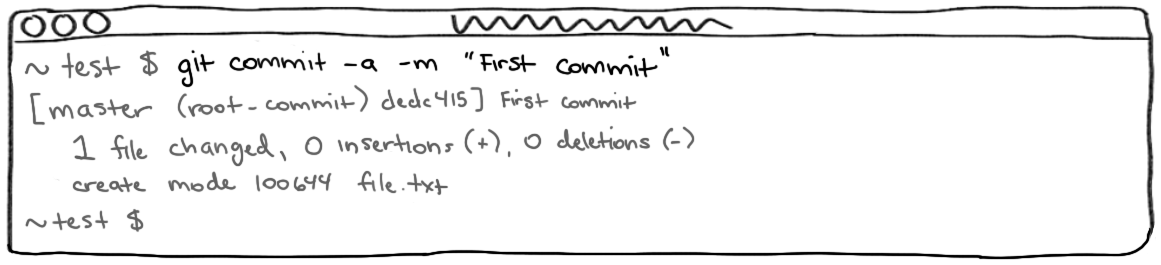 ~ test $ git commit -a -m "First commit"
[master (root-commit) dedc415] First commit
1 file changed, 0 insertions (+), 0 deletions (-)
create mode 100644 file.txt
~ test $